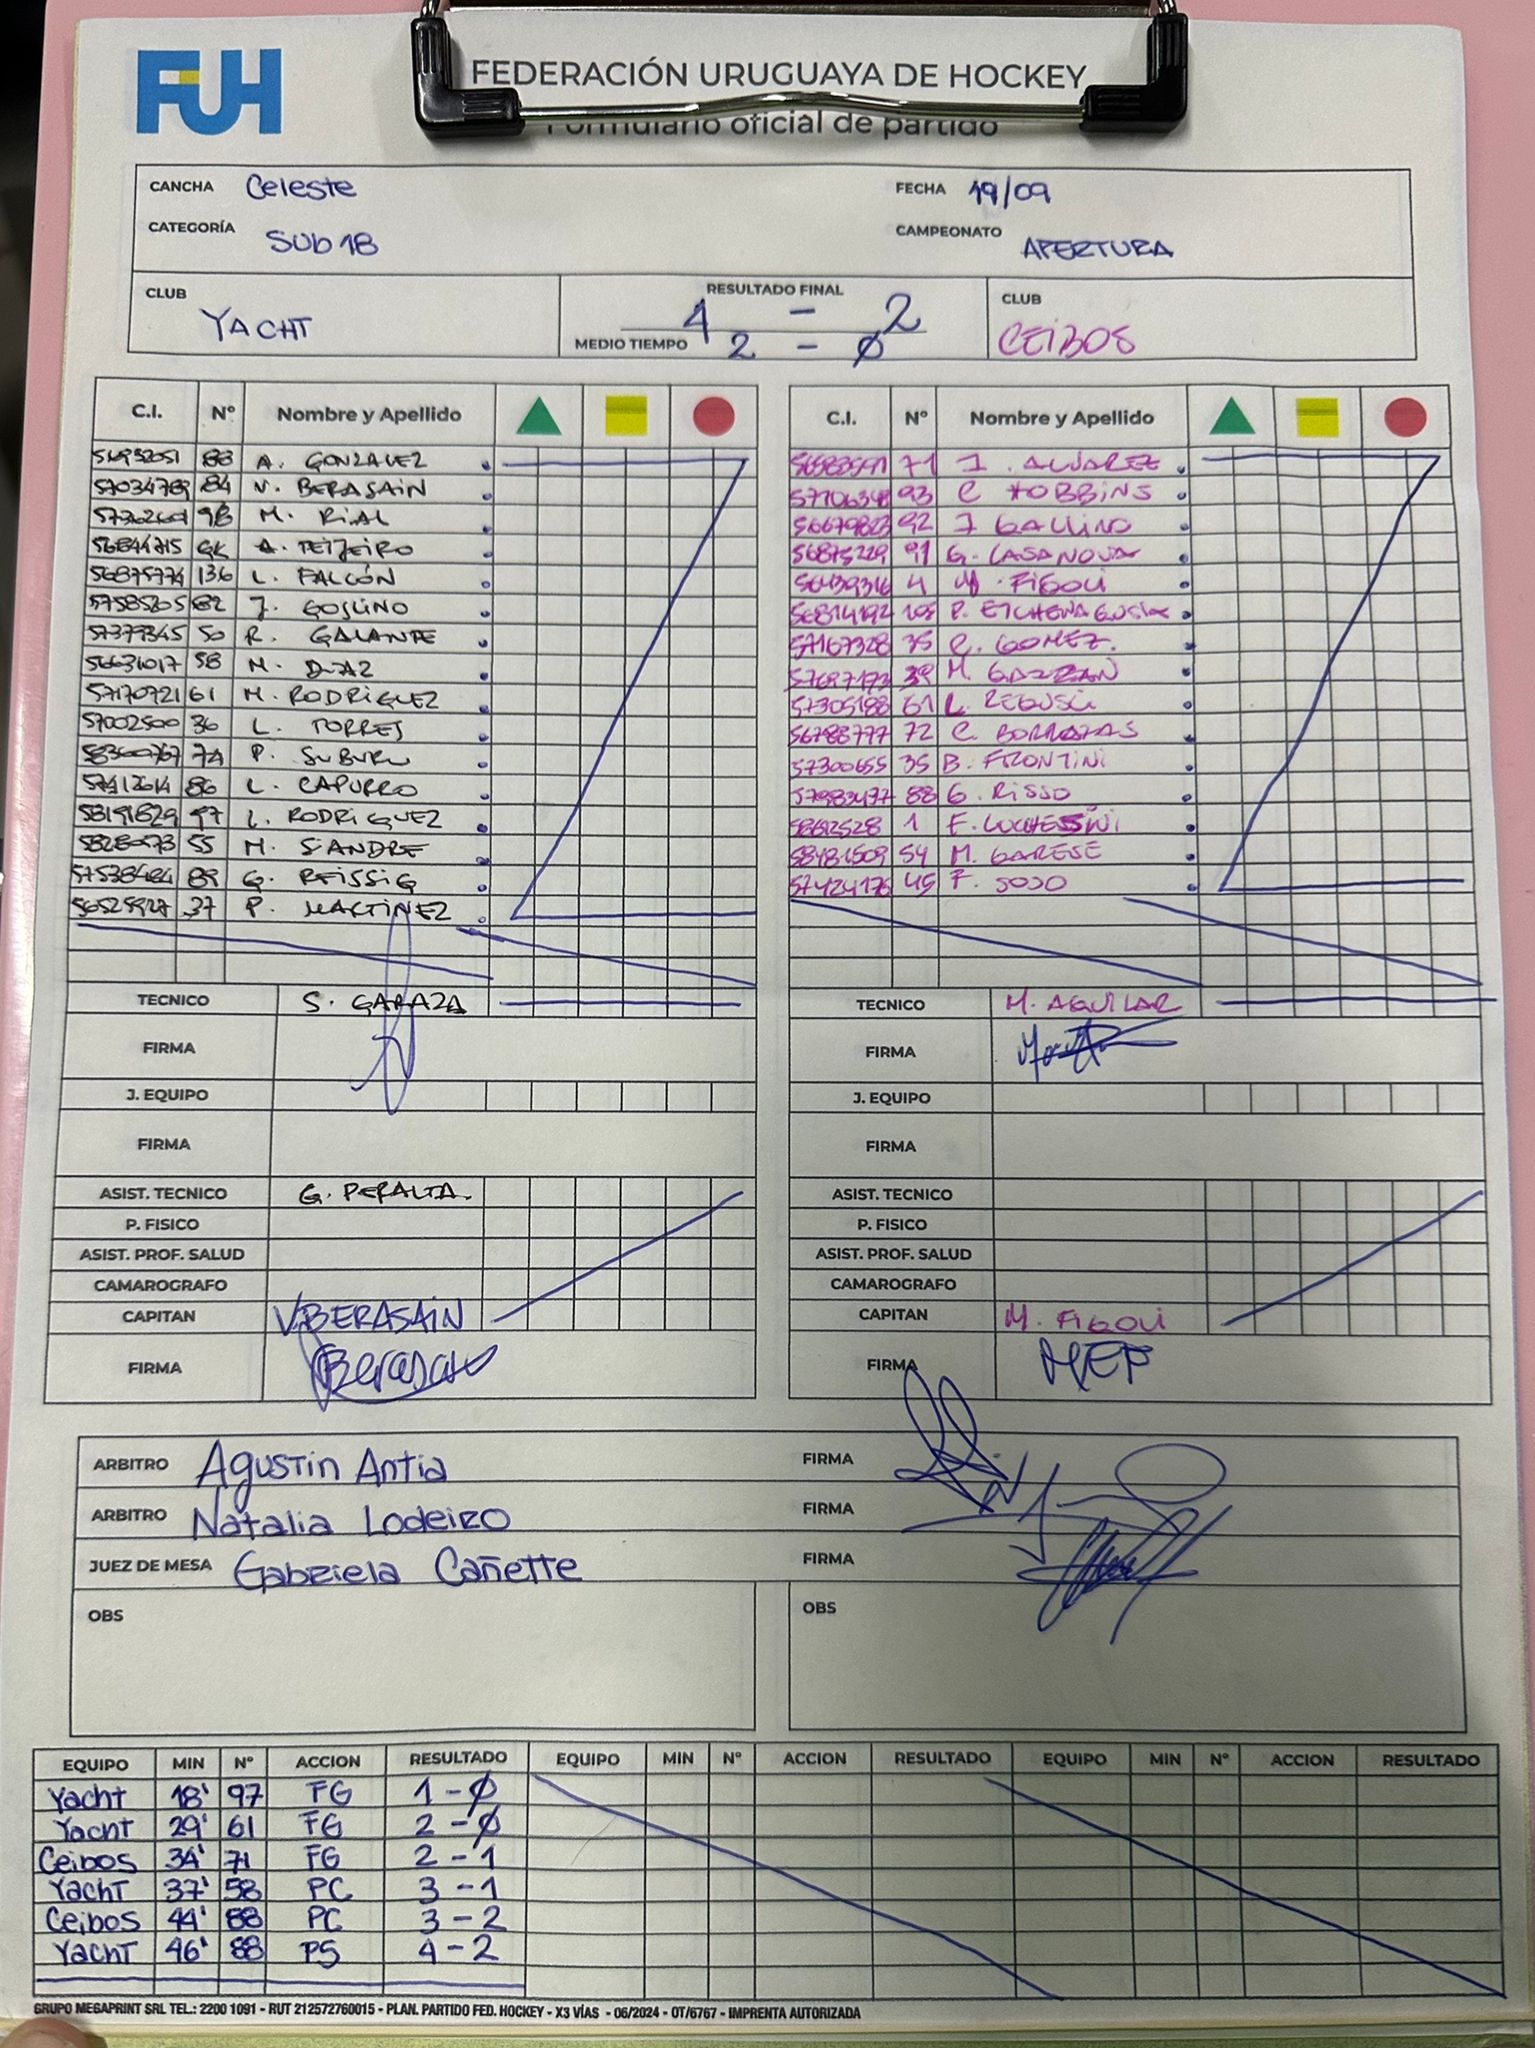 FUH
FEDERACIÓN URUGUAYA DE HOCKEY
Formulario oficial de partido
CANCHA Celeste FECHA 19/09
CATEGORÍA SUB 18 CAMPEONATO APERTURA
CLUB YACHT RESULTADO FINAL 4 - 2 CLUB CEIBOS
MEDIO TIEMPO 2 - Ø
C.I. Nº Nombre y Apellido
88 A. GONZALEZ
57034789 84 V. BERASAIN
98 M. RIAL
56844715 GK A. TEIJEIRO
56875774 136 L. FALCÓN
57585205 82 J. GOSLINO
57377345 50 R. GALANTE
56631017 58 M. DIAZ
57170721 61 M. RODRIGUEZ
57002500 36 L. TORRES
58300767 74 P. SUBURU
57412614 86 L. CAPURRO
58191829 97 L. RODRIGUEZ
55 M. SIANDRE
57538484 89 G. REISSIG
37 P. MARTINEZ
TECNICO S. GARAZA
FIRMA
J. EQUIPO
FIRMA
ASIST. TECNICO G. PERALTA.
P. FISICO
ASIST. PROF. SALUD
CAMAROGRAFO
CAPITAN V. BERASAIN
FIRMA Berasain
C.I. Nº Nombre y Apellido
71 J. ALVAREZ
57706348 93 C HOBBINS
56679823 92 J GALLINO
56875229 91 G. CASANOVA
56439316 4 M. FIGOLI
56814192 P. ETCHEVA
57167328 C. GOMEZ.
57697173 39 M. GAZZAN
57305188 61 L. REGUSCI
56788777 72 C. BORRAZAS
57300655 35 B. FRONTINI
57983477 88 G. RISSO
58612528 1 F. LUCHESSINI
58481509 54 M. GARESE
57424176 45 F. SOSO
TECNICO M. AGUILAR
FIRMA
J. EQUIPO
FIRMA
ASIST. TECNICO
P. FISICO
ASIST. PROF. SALUD
CAMAROGRAFO
CAPITAN M. FIGOLI
FIRMA MEF
ARBITRO Agustin Antia FIRMA
ARBITRO Natalia Lodeiro FIRMA
JUEZ DE MESA Gabriela Cañette FIRMA
OBS OBS
EQUIPO MIN Nº ACCION RESULTADO EQUIPO MIN Nº ACCION RESULTADO EQUIPO MIN Nº ACCION RESULTADO
Yacht 18' 97 FG 1 - Ø
Yacht 29' 61 FG 2 - Ø
Ceibos 34' 71 FG 2 - 1
Yacht 37' 58 PC 3 - 1
Ceibos 44' 88 PC 3 - 2
Yacht 46' 88 PS 4 - 2
GRUPO MEGAPRINT SRL TEL.: 2200 1091 - RUT 212572760015 - PLAN. PARTIDO FED. HOCKEY - X3 VÍAS - 06/2024 - OT/6767 - IMPRENTA AUTORIZADA